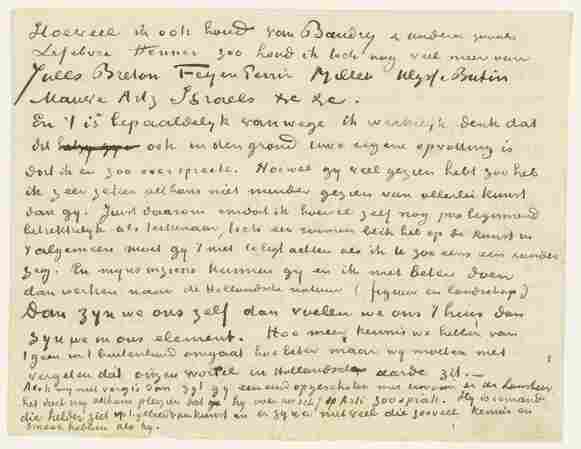 Hoeveel ik ook houd van Baudry & andere zooals
Lefebvre Henner zoo houd ik toch nog veel meer van
Jules Breton Feyen Perrin Millet Ulysse Butin
Mauve Artz Israels &c &c.
En 't is bepaaldelijk vanwege ik werkelijk denk dat
dit ook in den grond Uwe eigene opvatting is
dat ik er zoo over spreek. Hoewel gij veel gezien hebt zoo heb
ik zeer zeker althans niet minder gezien van allerlei kunst
dan gij. Juist daarom omdat ik hoewel zelf nog pas beginnend
betrekkelijk als teekenaar, toch een ruimen blik heb op de kunst in
't algemeen moet gij 't niet te ligt achten als ik te zoo eens een en ander
zeg. En mijns inziens kunnen gij en ik niet beter doen
dan werken naar de Hollandsche natuur (figuur en landschap)
Dan zijn we ons zelf dan voelen we ons t'huis dan
zijn we in ons element. Hoe meer kennis we hebben van
't geen in 't buitenland omgaat hoe beter maar wij moeten niet
vergeten dat onzen wortel in Hollandsche aarde zit. —
Als ik mij niet vergis dan zijt gij een eind opgeschoten met uw en de Landheer
het doet mij althans plezier dat hij over en/of op Artz zoo sprak. Hij is iemand
die helder ziet op 't gebied van kunst en er zijn er niet veel die zooveel kennis en
smaak hebben als hij.